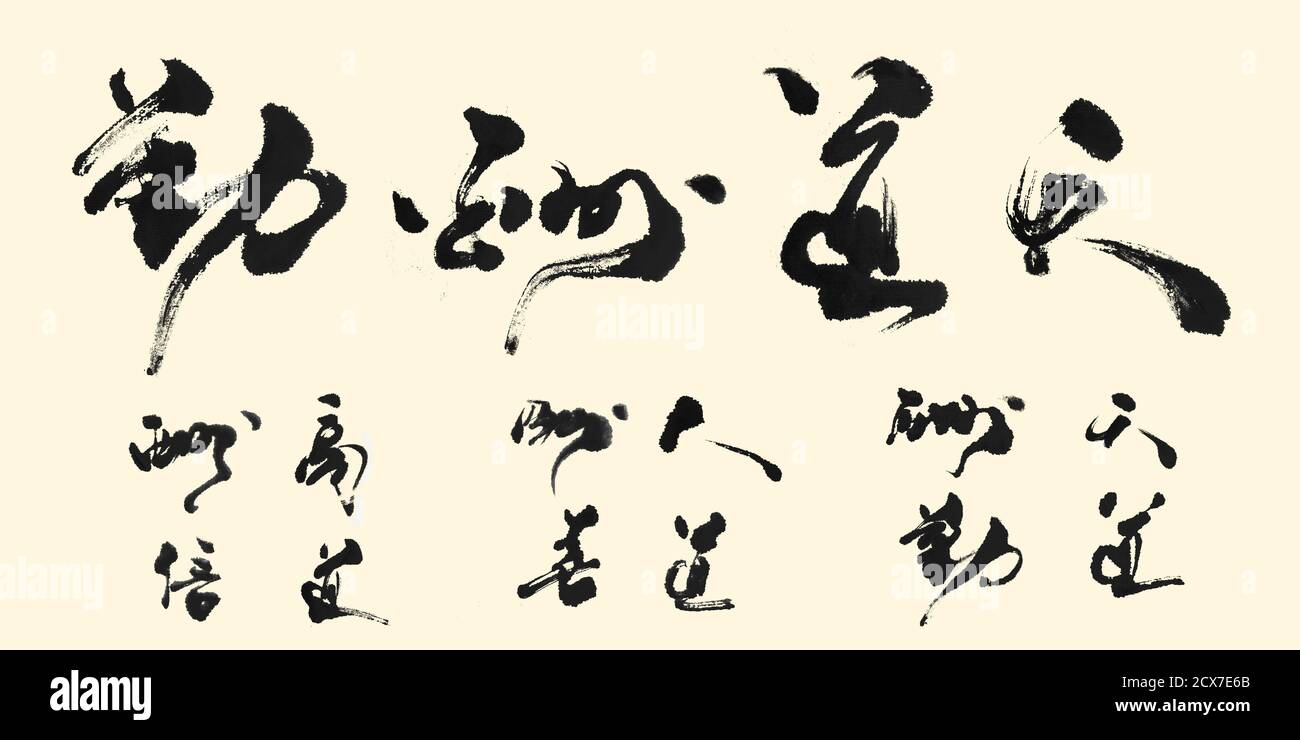 天道酬勤
天道
酬勤
人道
酬善
商道
酬信
alamy
Image ID: 2CX7E6B
www.alamy.com